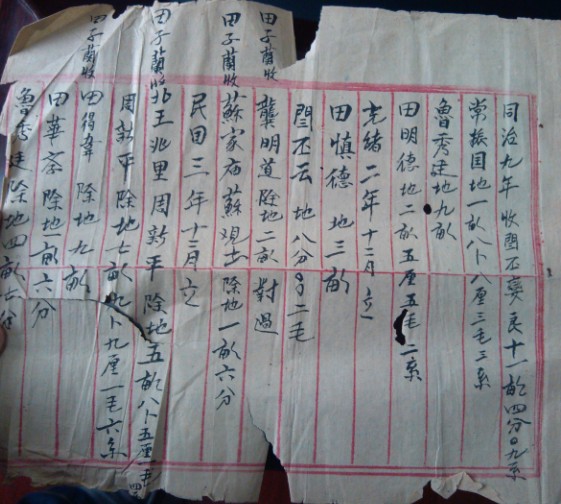 同治九年 收閻丕夢民十一畝四分〇九系
常振国地一畝八卜八厘三毛三系
魯秀廷地九畝
田明德地二畝五厘五毛二系
光緒二年十二月立
田慎德地三畝
閻丕云地八分〇二毛
田子蘭收 龔明道除地二畝 對過
田子蘭收 蘇家庙蘇观士除地一畝六分
民国三年十二月立
田子蘭收 北王兆里周新平除地五畝八卜五厘一毛四
周新平除地七畝九卜九厘一毛六系
田子蘭收 田得韋除地九畝
田華齋除地一畝六分
魯秀廷除地四畝七分